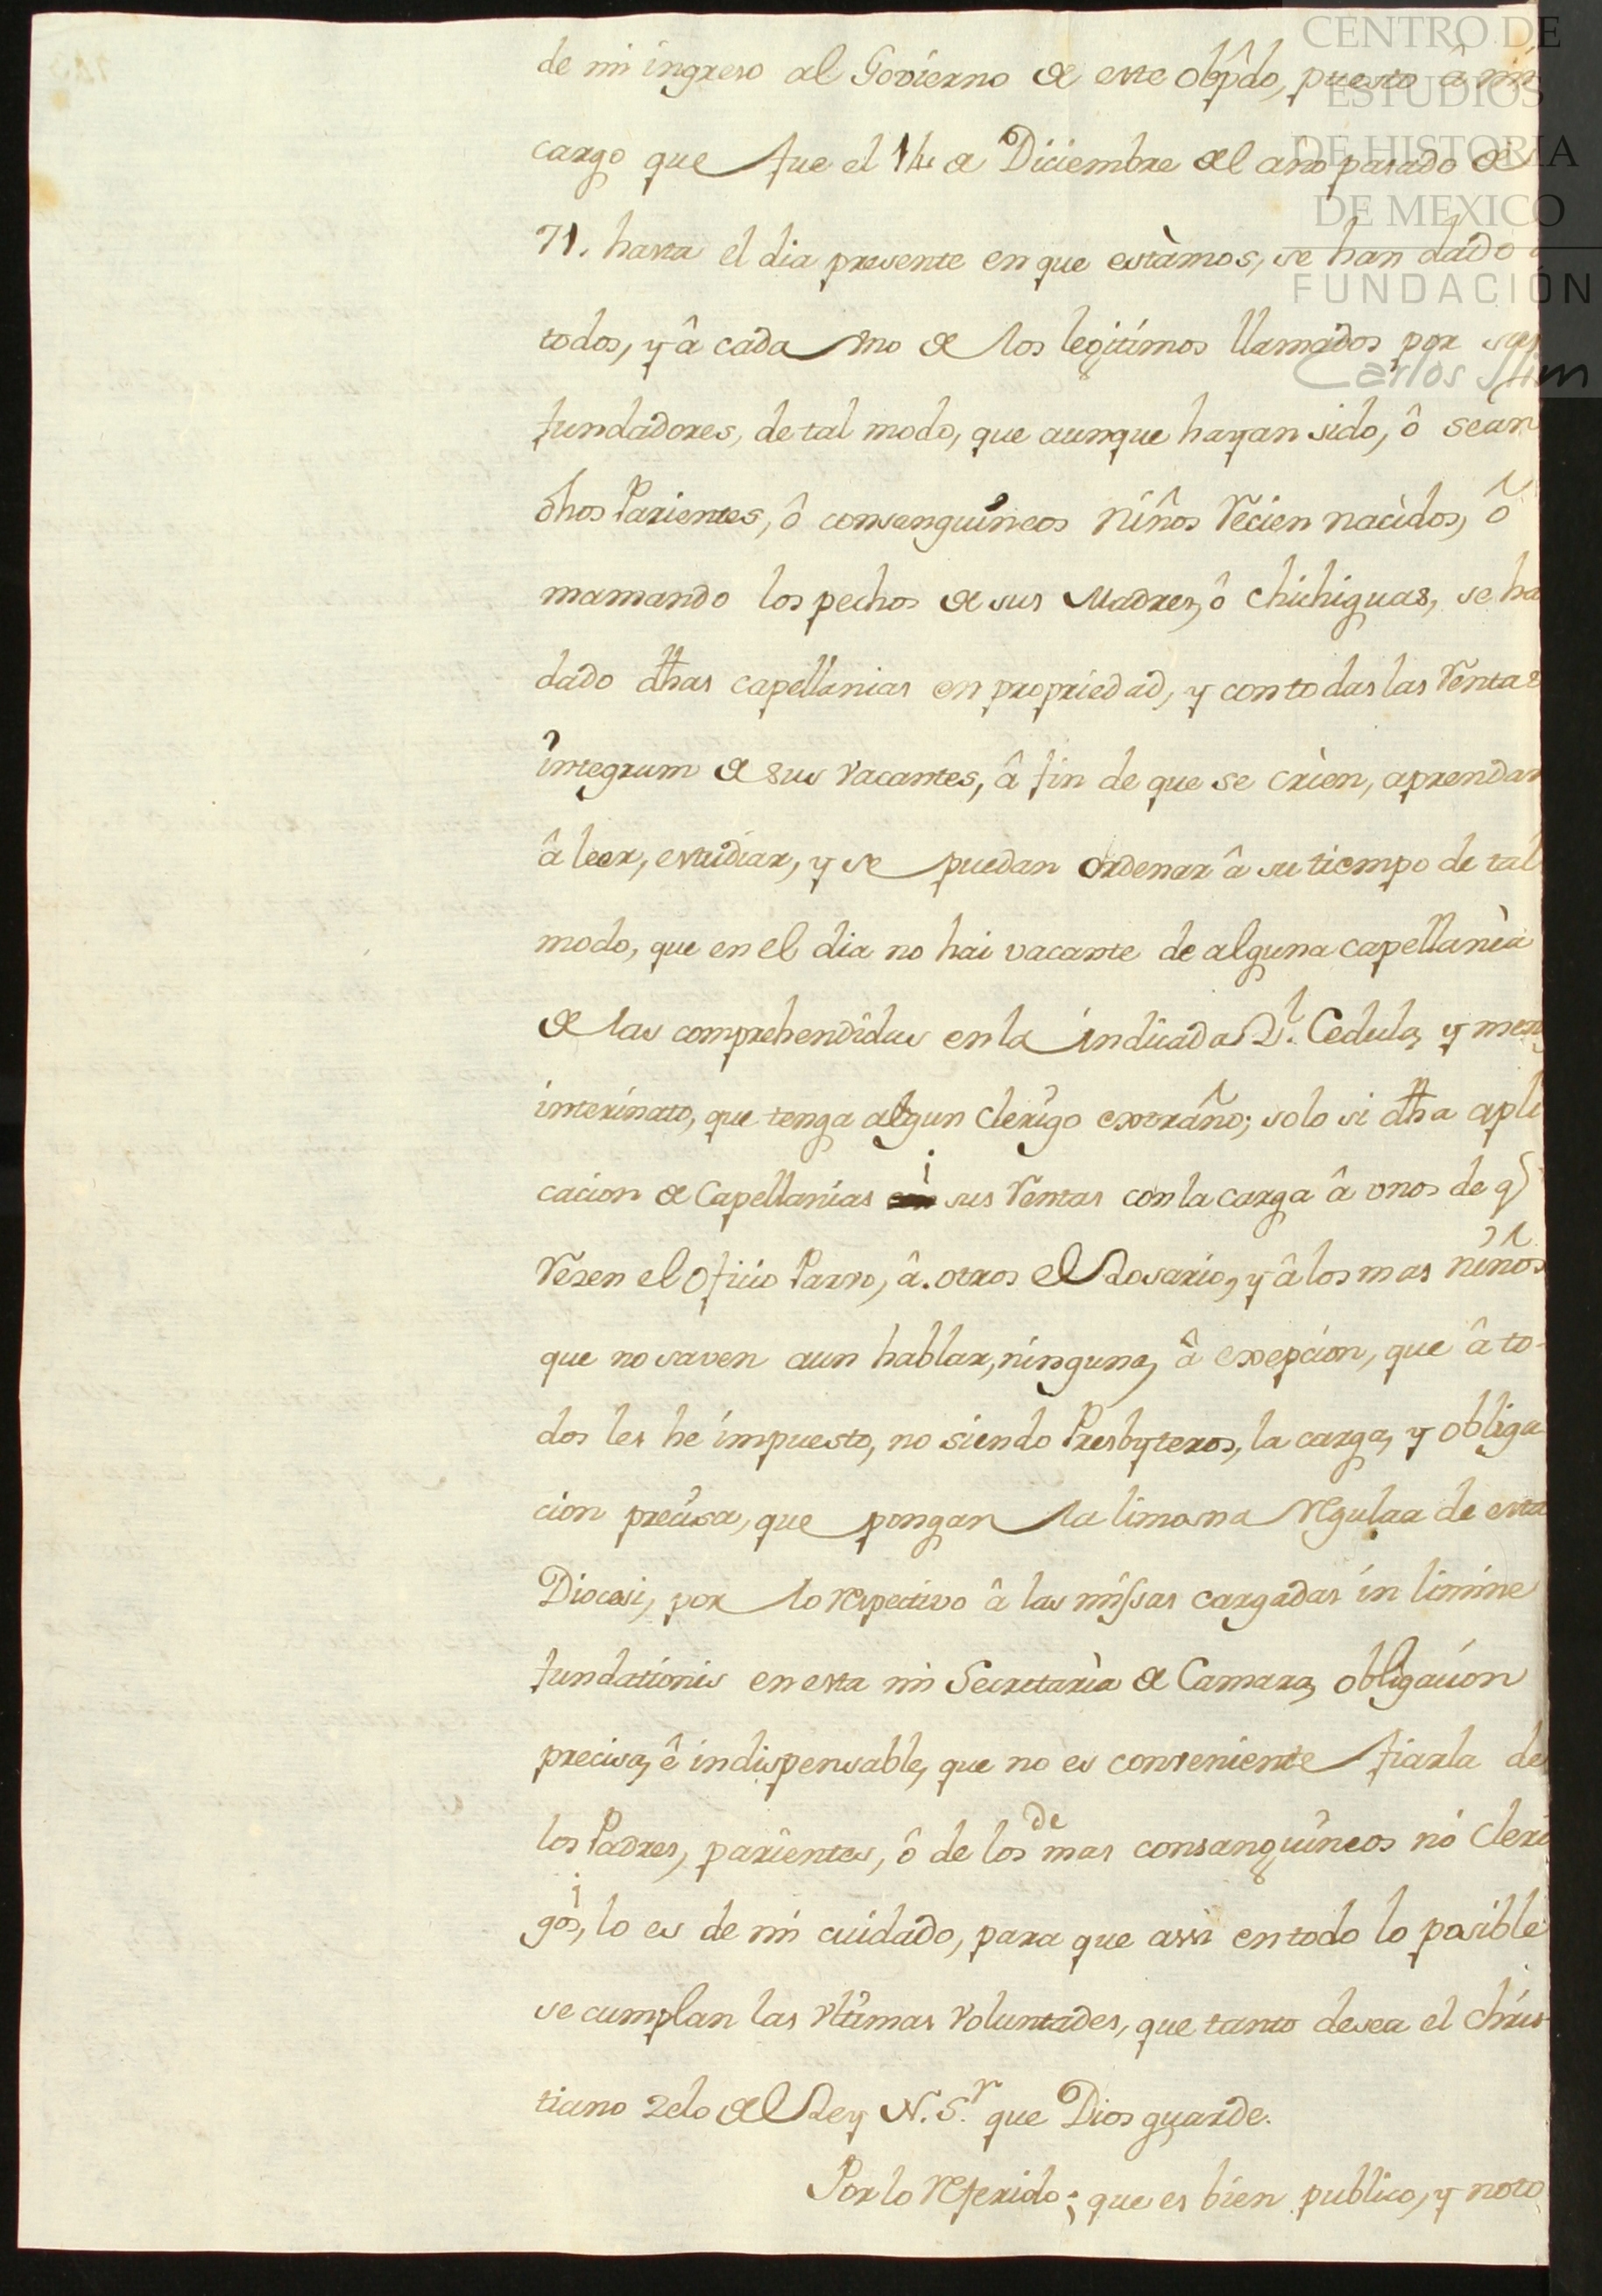 CENTRO DE
ESTUDIOS
DE HISTORIA
DE MEXICO
FUNDACIÓN
Carlos Slim
de mi ingreso al Govierno de este Obpdo, puesto â mi
cargo que fue el 14 de Diciembre del año pasado de
71. hasta el dia presente en que estàmos, se han dado
todos, y â cada uno de los legitimos llamados por sus
fundadores, de tal modo, que aunque hayan sido, ô sean
dhos Parientes, ô consanguineos Niños recien nacidos, ô
mamando los pechos de sus Madres, ô chichiguas, se ha
dado dhas capellanias en propriedad, y con todas las rentas
integrum de sus vacantes, â fin de que se crien, aprendan
â leer, estudiar, y se puedan ordenar â su tiempo de tal
modo, que en el dia no hai vacante de alguna capellanìa
de las comprehendidas en la indicada Rl. Cedula, y
interinato, que tenga algun Clerigo extraño; solo si dha apli
cacion de Capellanias i sus rentas con la carga â unos de q
rezen el Oficio Parvo, â otros el Rosario, y â los mas niños
que no saven aun hablar, ninguna, â exepcion, que â to-
dos les he impuesto, no siendo Presbyteros, la carga, y obliga
cion precisa, que pongan la limosna regulaa de esta
Diocesi, por lo respectivo â las missas cargadas in limine
fundationis en esta mi Secretarìa de Camara, obligacion
precisa, ê indispensable, que no es conveniente fiarla de
los Padres, parientes, ô de los de mas consanguineos nó cleri
gos, i lo es de mi cuidado, para que assi en todo lo posible
se cumplan las ultimas voluntades, que tanto desea el chris-
tiano zelo del Rey N. Sr. que Dios guarde.
Por lo referido; que es bien publico, y noto